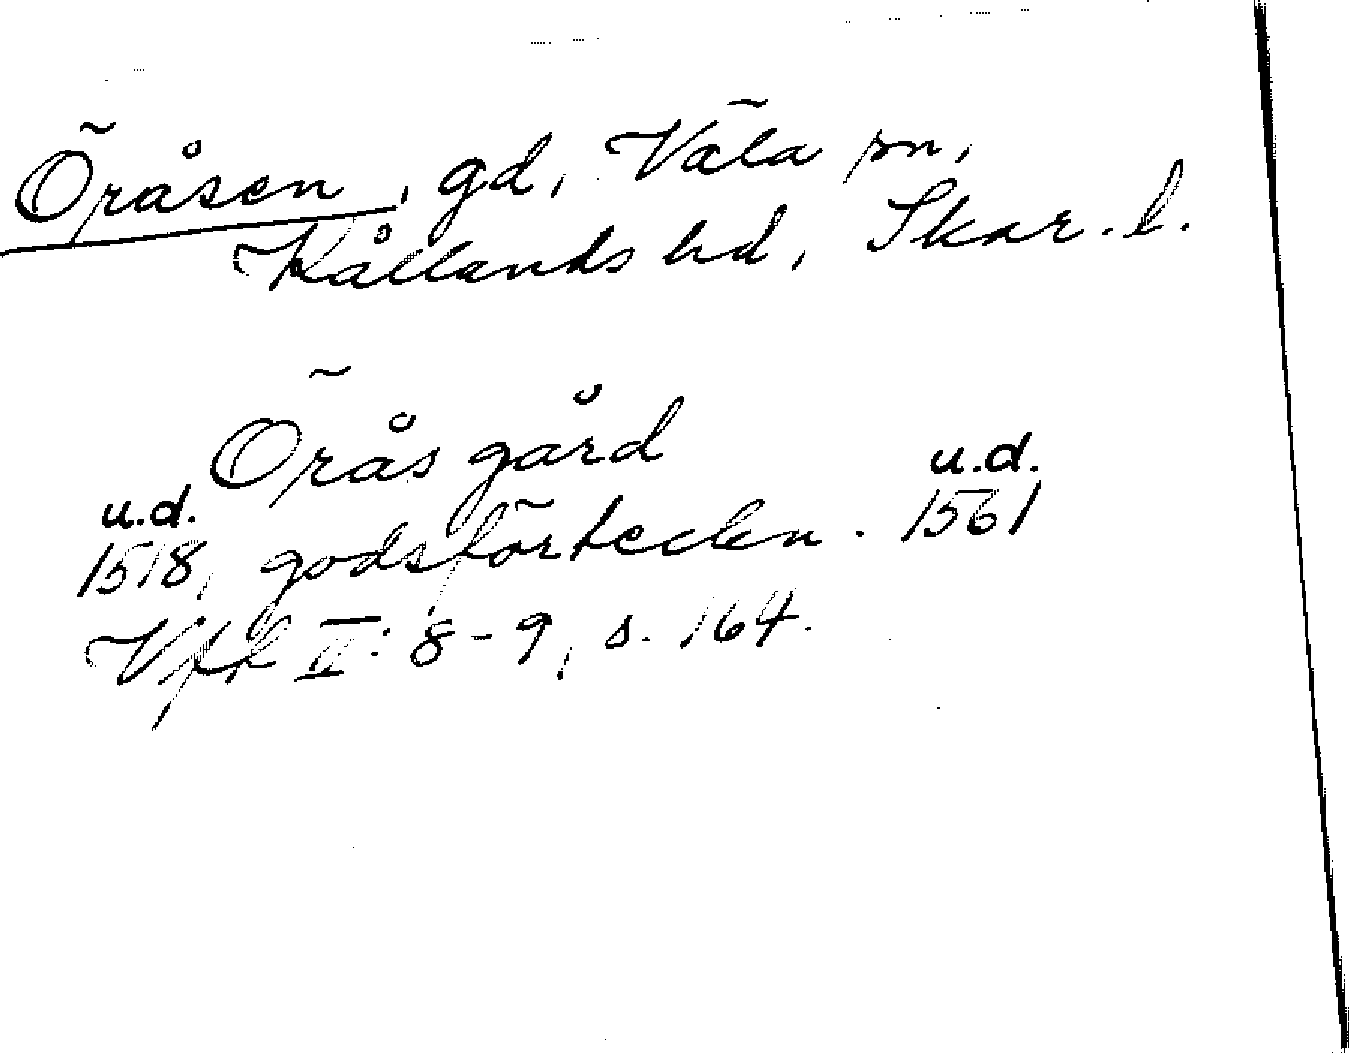 Öråsen, gd, Väla sn,
Kållands hd, Skar. l.
Örås gård
u.d. u.d.
1518, godsförteckn. 1561
Vfk II: 8-9, s. 164.